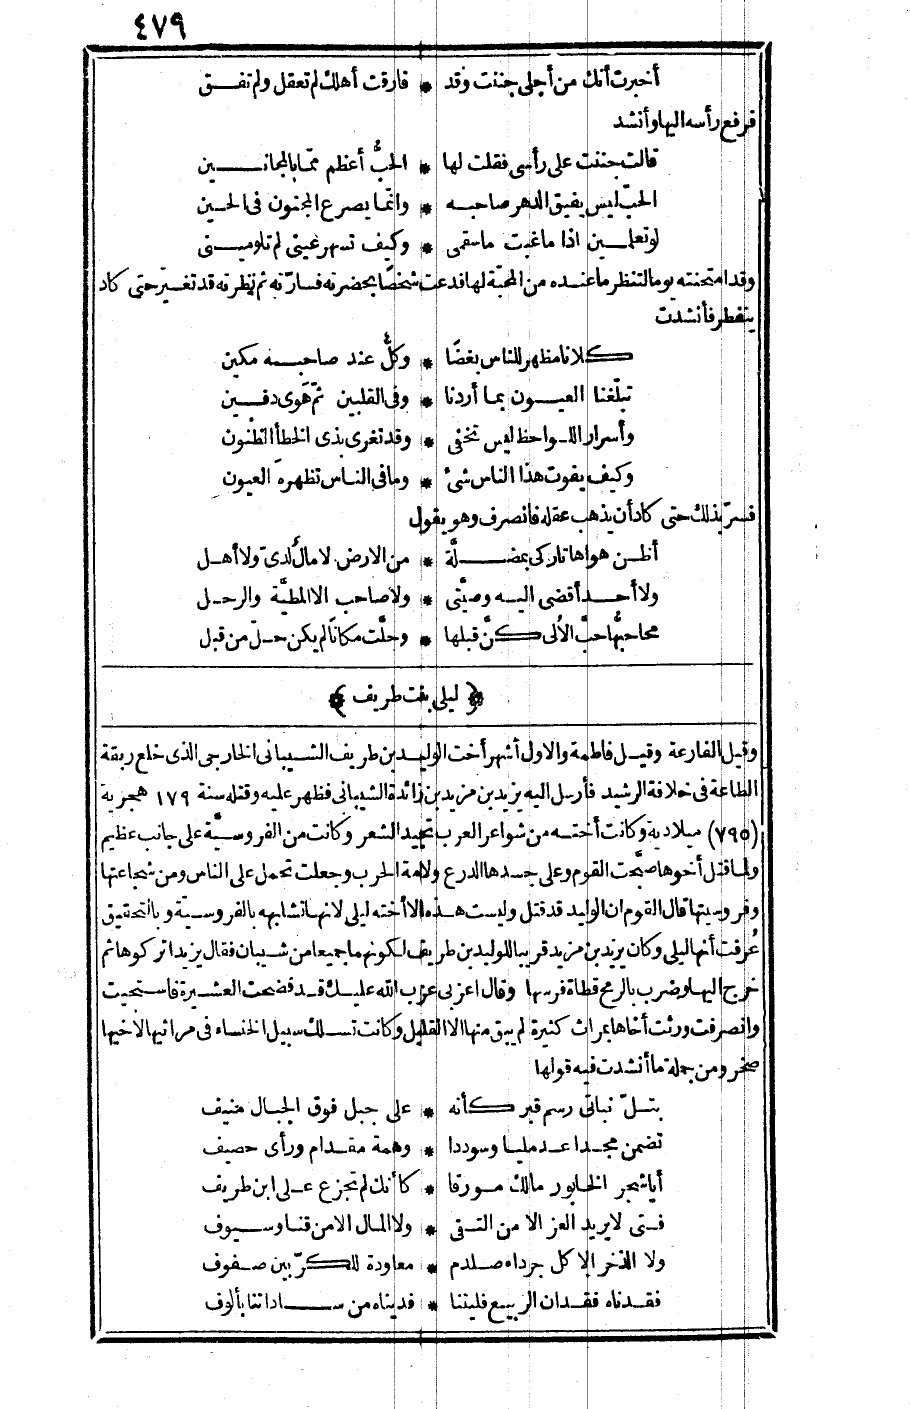 ٤٧٩
أخبرت أنك من أجلى جننت وقد * فارقت أهلك لم تعقل ولم تفـق
فرفع رأسه اليها وأنشد
قالت جننت على رأسى فقلت لها * الحبُّ أعظم ممّا بالمجانـــين
الحبّ ليس يفيق الدهر صاحبـه * وانّما يصرع المجنون فى الحـين
لو تعلمـين اذا ما غبت ما سقمى * وكيف تسهر عينى لم تلومـينى
وقد امتحنته يوما لتنظر ما عنده من المحبّة لها فدعت شخصًا بحضرته فسارّته ثم نظرته قد تغيّر حتى كاد
ينفطر فأنشدت
كلانا مظهر للناس بغضًا * وكلٌّ عند صاحبـه مكين
تبلّغنا العيـون بما أردنا * وفى القلبين ثمّ هَوى دفـين
وأسرار اللـواحظ ليس تخفى * وقد تغرى بذى الخطأ الظنون
وكيف يفوت هذا الناس شئ * وما فى الناس تظهره العيون
فسرّ بذلك حتى كاد أن يذهب عقله فانصرف وهو يقول
أظـن هواها تاركى بمضـلَّة * من الارض لا مالٌ لدىّ ولا أهـل
ولا أحـد أقضى اليـه وصيَّتى * ولا صاحب الا المطيَّة والرحـل
محا حبُّها حبَّ الأُلى كنَّ قبلها * وحلَّت مكانًا لم يكن حـلّ من قبل
﴿ ليلى بنت طريف ﴾
وقيل الفارعة وقيـل فاطمة والاول أشهر أخت الوليـد بن طريف الشيبانى الخارجى الذى خلع ربقة
الطاعة فى خلافة الرشيد فأرسل اليه يزيد بن مزيد بن زائدة الشيبانى فظهر عليه وقتله سنة ١٧٩ هجرية
(٧٩٥) ميلادية وكانت أختـه من شواعر العرب تجيد الشعر وكانت من الفروسيَّة على جانب عظيم
ولما قتل أخوها صبَّحت القوم وعلى جسدها الدرع ولامة الحرب وجعلت تحمل على الناس ومن شجاعتها
وفروسيتها قال القوم ان الوليد قد قتل وليست هذه الا أخته ليلى لانها تشابهه بالفروسيّة وبالتحقيق
عُرفت أنها ليلى وكان يزيد بن مزيد قريبا للوليد بن طريف لكونهما جميعا من شيبان فقال يزيد اتركوها ثم
خرج اليها وضرب بالرمح قطاة فرسها وقال اعزبى عزب الله عليك قـد فضحت العشيرة فاستحيت
وانصرفت ورثت أخاها بمراث كثيرة لم يبق منها الا القليل وكانت تسلك سبيل الخنساء فى مراثيها لاخيها
صخر ومن جملة ما أنشدت فيه قولها
بتـلّ نباتى رسم قبر كأنه * على جبل فوق الجبال منيف
تضمن مجـدا عـدمليا وسوددا * وهمة مقـدام ورأى حصيف
أيا شجر الخابور مالك مـورقا * كأنك لم تجزع عـلى ابن طريف
فـتى لا يريد العز الا من التـقى * ولا المال الا من قنـا وسـيوف
ولا الذخر إلا كل جرداء صلدم * معاودة للكرّ بين صفوف
فقـدناه فقـدان الربيـع فليتنا * فديناه من سـاداتنا بألوف